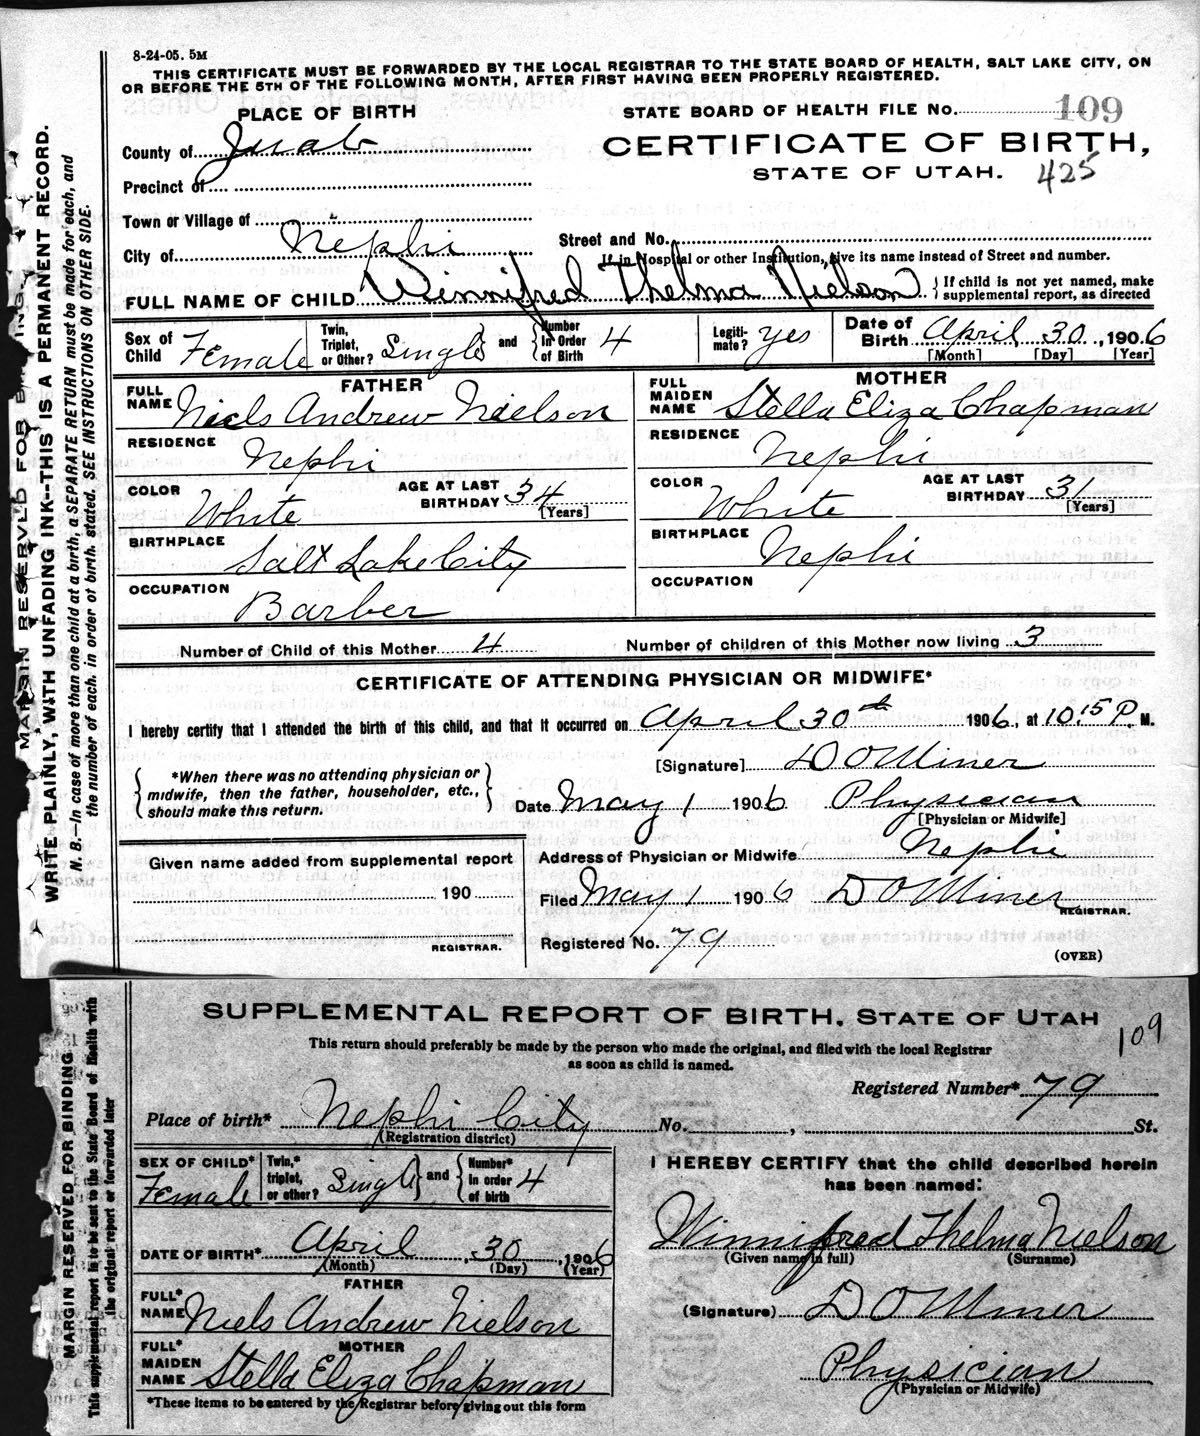 8-24-05. 5M
THIS CERTIFICATE MUST BE FORWARDED BY THE LOCAL REGISTRAR TO THE STATE BOARD OF HEALTH, SALT LAKE CITY, ON
OR BEFORE THE 5TH OF THE FOLLOWING MONTH, AFTER FIRST HAVING BEEN PROPERLY REGISTERED.
MARGIN RESERVED FOR BINDING
WRITE PLAINLY, WITH UNFADING INK--THIS IS A PERMANENT RECORD.
N. B.—In case of more than one child at a birth, a SEPARATE RETURN must be made for each, and
the number of each, in order of birth, stated. SEE INSTRUCTIONS ON OTHER SIDE.
PLACE OF BIRTH
County of Juab
Precinct of
Town or Village of
City of Nephi
STATE BOARD OF HEALTH FILE NO. 109
CERTIFICATE OF BIRTH,
STATE OF UTAH. 425
Street and No.
If in Hospital or other Institution, give its name instead of Street and number.
FULL NAME OF CHILD Winnifred Thelma Nielson { If child is not yet named, make
supplemental report, as directed
Sex of Child Female
Twin, Triplet, or Other? Single } and { Number In Order of Birth 4
Legiti- mate? yes
Date of Birth April 30, 1906
[Month] [Day] [Year]
FATHER
FULL NAME Niels Andrew Nielson
RESIDENCE Nephi
COLOR White AGE AT LAST BIRTHDAY 34
[Years]
BIRTHPLACE Salt Lake City
OCCUPATION Barber
MOTHER
FULL MAIDEN NAME Stella Eliza Chapman
RESIDENCE Nephi
COLOR White AGE AT LAST BIRTHDAY 31
[Years]
BIRTHPLACE Nephi
OCCUPATION
Number of Child of this Mother 4 Number of children of this Mother now living 3
CERTIFICATE OF ATTENDING PHYSICIAN OR MIDWIFE*
I hereby certify that I attended the birth of this child, and that it occurred on April 30th 1906, at 10.15 P. M.
{ *When there was no attending physician or
midwife, then the father, householder, etc.,
should make this return. }
[Signature] D O Miner
Date May 1 1906 Physician
[Physician or Midwife]
Given name added from supplemental report
190
REGISTRAR.
Address of Physician or Midwife Nephi
Filed May 1 1906 D O Miner
REGISTRAR.
Registered No. 79
(OVER)
SUPPLEMENTAL REPORT OF BIRTH, STATE OF UTAH
109
This return should preferably be made by the person who made the original, and filed with the local Registrar
as soon as child is named.
MARGIN RESERVED FOR BINDING
This supplemental report in to be sent to the State Board of Health with
the original report or forwarded later
Registered Number* 79
Place of birth* Nephi City No. , St.
(Registration district)
SEX OF CHILD* Female
Twin,* triplet, or other? Single } and { Number* In order of birth 4
DATE OF BIRTH* April, 30, 1906
(Month) (Day) (Year)
FATHER
FULL* NAME Niels Andrew Nielson
MOTHER
FULL* MAIDEN NAME Stella Eliza Chapman
*These items to be entered by the Registrar before giving out this form
I HEREBY CERTIFY that the child described herein
has been named:
Winnifred Thelma Nielson
(Given name in full) (Surname)
(Signature) D O Miner
Physician
(Physician or Midwife)